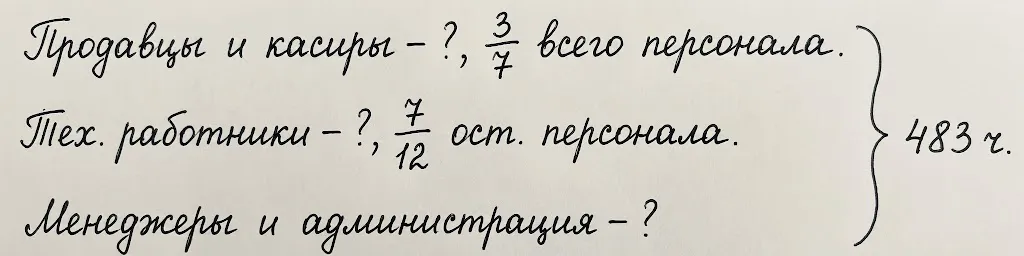 Продавцы и касиры – ?, 3/7 всего персонала.
Тех. работники – ?, 7/12 ост. персонала. } 483 ч.
Менеджеры и администрация – ?